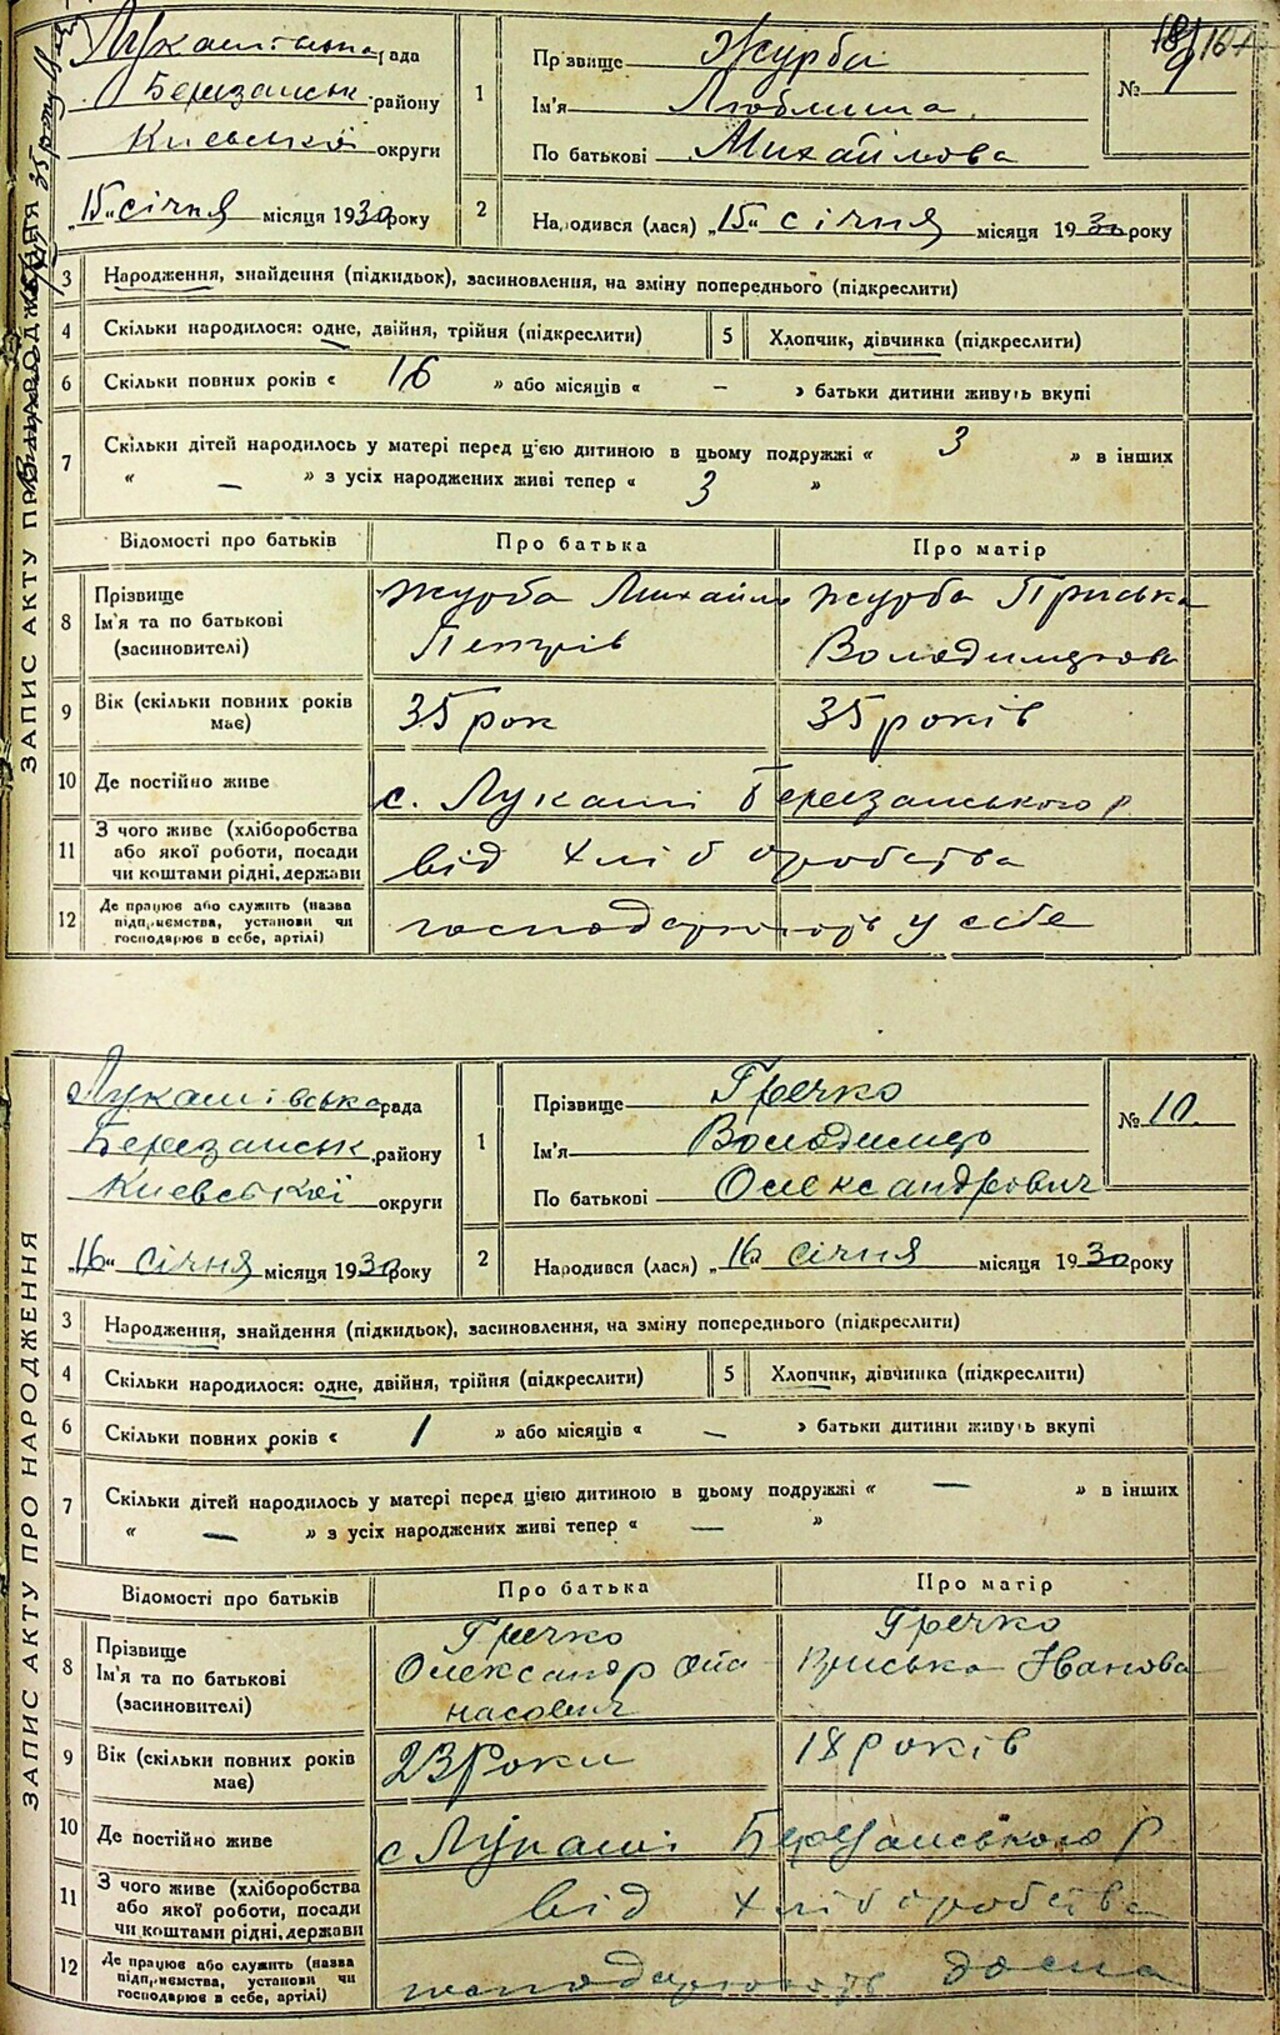 Лукашівська рада
Березанськ району
Київської округи
„15“ січня місяця 1930 року
1
Прізвище Журба
Ім'я Люблина
По батькові Михайлова
№ 9
2
Народився (лася) „15“ січня місяця 1930 року
ЗАПИС АКТУ ПРО НАРОДЖЕННЯ
3 Народження, знайдення (підкидьок), засиновлення, на зміну попереднього (підкреслити)
4 Скільки народилося: одне, двійня, трійня (підкреслити) 5 Хлопчик, дівчинка (підкреслити)
6 Скільки повних років « 16 » або місяців « — » батьки дитини живуть вкупі
7 Скільки дітей народилось у матері перед цією дитиною в цьому подружжі « 3 » в інших
« — » з усіх народжених живі тепер « 3 »
Відомості про батьків Про батька Про матір
8 Прізвище Ім'я та по батькові (засиновителі)
Журба Михайло Петрів
Журба Приська Володимирова
9 Вік (скільки повних років має) 35 рок 35 років
10 Де постійно живе с. Лукаші Березанського р
11 З чого живе (хліборобства або якої роботи, посади чи коштами рідні, держави від хліборобства
12 Де працює або служить (назва підприємства, установи чи господарює в себе, артілі) господарюють у себе
Лукашівська рада
Березанськ району
Київської округи
„16“ січня місяця 1930 року
1
Прізвище Гречко
Ім'я Володимир
По батькові Олександрович
№ 10.
2
Народився (лася) „16“ січня місяця 1930 року
ЗАПИС АКТУ ПРО НАРОДЖЕННЯ
3 Народження, знайдення (підкидьок), засиновлення, на зміну попереднього (підкреслити)
4 Скільки народилося: одне, двійня, трійня (підкреслити) 5 Хлопчик, дівчинка (підкреслити)
6 Скільки повних років « 1 » або місяців « — » батьки дитини живуть вкупі
7 Скільки дітей народилось у матері перед цією дитиною в цьому подружжі « — » в інших
« — » з усіх народжених живі тепер « — »
Відомості про батьків Про батька Про матір
8 Прізвище Ім'я та по батькові (засиновителі)
Гречко Олександр Опанасович
Гречко Приська Іванова
9 Вік (скільки повних років має) 23 роки 18 років
10 Де постійно живе с Лукаші Березанського р
11 З чого живе (хліборобства або якої роботи, посади чи коштами рідні, держави від хліборобства
12 Де працює або служить (назва підприємства, установи чи господарює в себе, артілі) господарюють дома